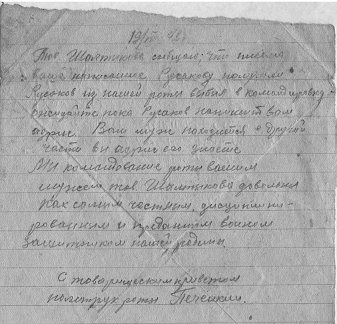 Тов Шалтикова сообщаю, что письмо
ваше написанное Русакову получили
Русаков из нашей роты выбыл в командировку
ожидайте пока Русаков напишет вам
адрес. Ваш муж находится в другой
части вы адрес его знаете
Мы командование роты вашим
мужем тов Шалтиковым довольны
как самым честным, дисциплини-
рованным и преданым воином
защитником нашей родины.
С товарищеским приветом
политрук роты